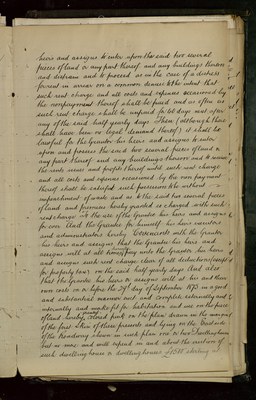 heirs and assigns to enter upon the said two several
pieces of land or any part thereof and any buildings thereon
and distrain and to proceed as in the case of a distress
for rent in arrear on a common demise to the intent that
such rent charge and all costs and expenses occasioned by
the nonpayment thereof shall be paid and as often as
such rent charge shall be unpaid for 60 days next after
any of the said half yearly days Then (although there
shall have been no legal demand thereof) it shall be
lawful for the Grantor his heirs and assigns to enter
upon and possess the said two several pieces of land or
any part thereof and any buildings thereon and to receive
the rents issues and profits thereof until such rent charge
and all costs and expenses occasioned by the non payment
thereof shall be satisfied such possession to be without
impeachment of waste and as to the said two several pieces
of land and premises hereby granted so charged with such
rent charge to the use of the Grantee his heirs and assigns
for ever And the Grantee for himself his heirs executors
and administrators hereby Covenants with the Grantor
his heirs and assigns that the Grantee his heirs and
assigns will at all times pay unto the Grantor his heirs
and assigns such rent charge clear of all deductions (except
for property tax) on the said half yearly days And also
that the Grantee his heirs or assigns will at his and their
own costs on or before the 29th day of September 1875 in a good
and substantial manner erect and complete externally and
internally and make fit for habitation and use on the piece
of land hereby colored pink on the plan drawn in the margin
of the first skin of these presents and lying on the East side
of the Roadway shewn in such plan one or two Dwellinghouses
but no more and will expend in and about the erection of
such dwellinghouse or dwellinghouses £500 sterling at